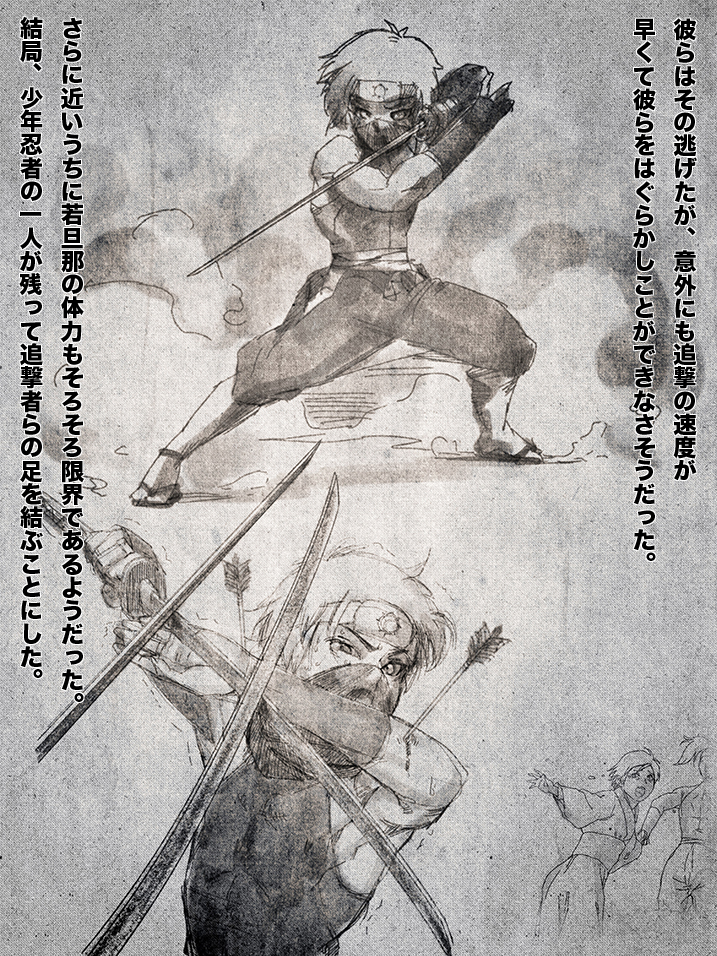 彼らはその逃げたが、意外にも追撃の速度が
早くて彼らをはぐらかしことができなさそうだった。
さらに近いうちに若旦那の体力もそろそろ限界であるようだった。
結局、少年忍者の一人が残って追撃者らの足を結ぶことにした。